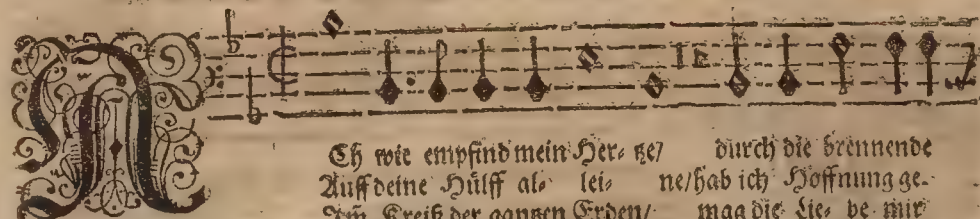 ACh wie empfind mein Her- tze/ durch die brennende
Auff deine Hülff al- lei- ne/hab ich Hoffnung ge-
Am Creiß der gantzen Erden/ mag die Lie- be mir